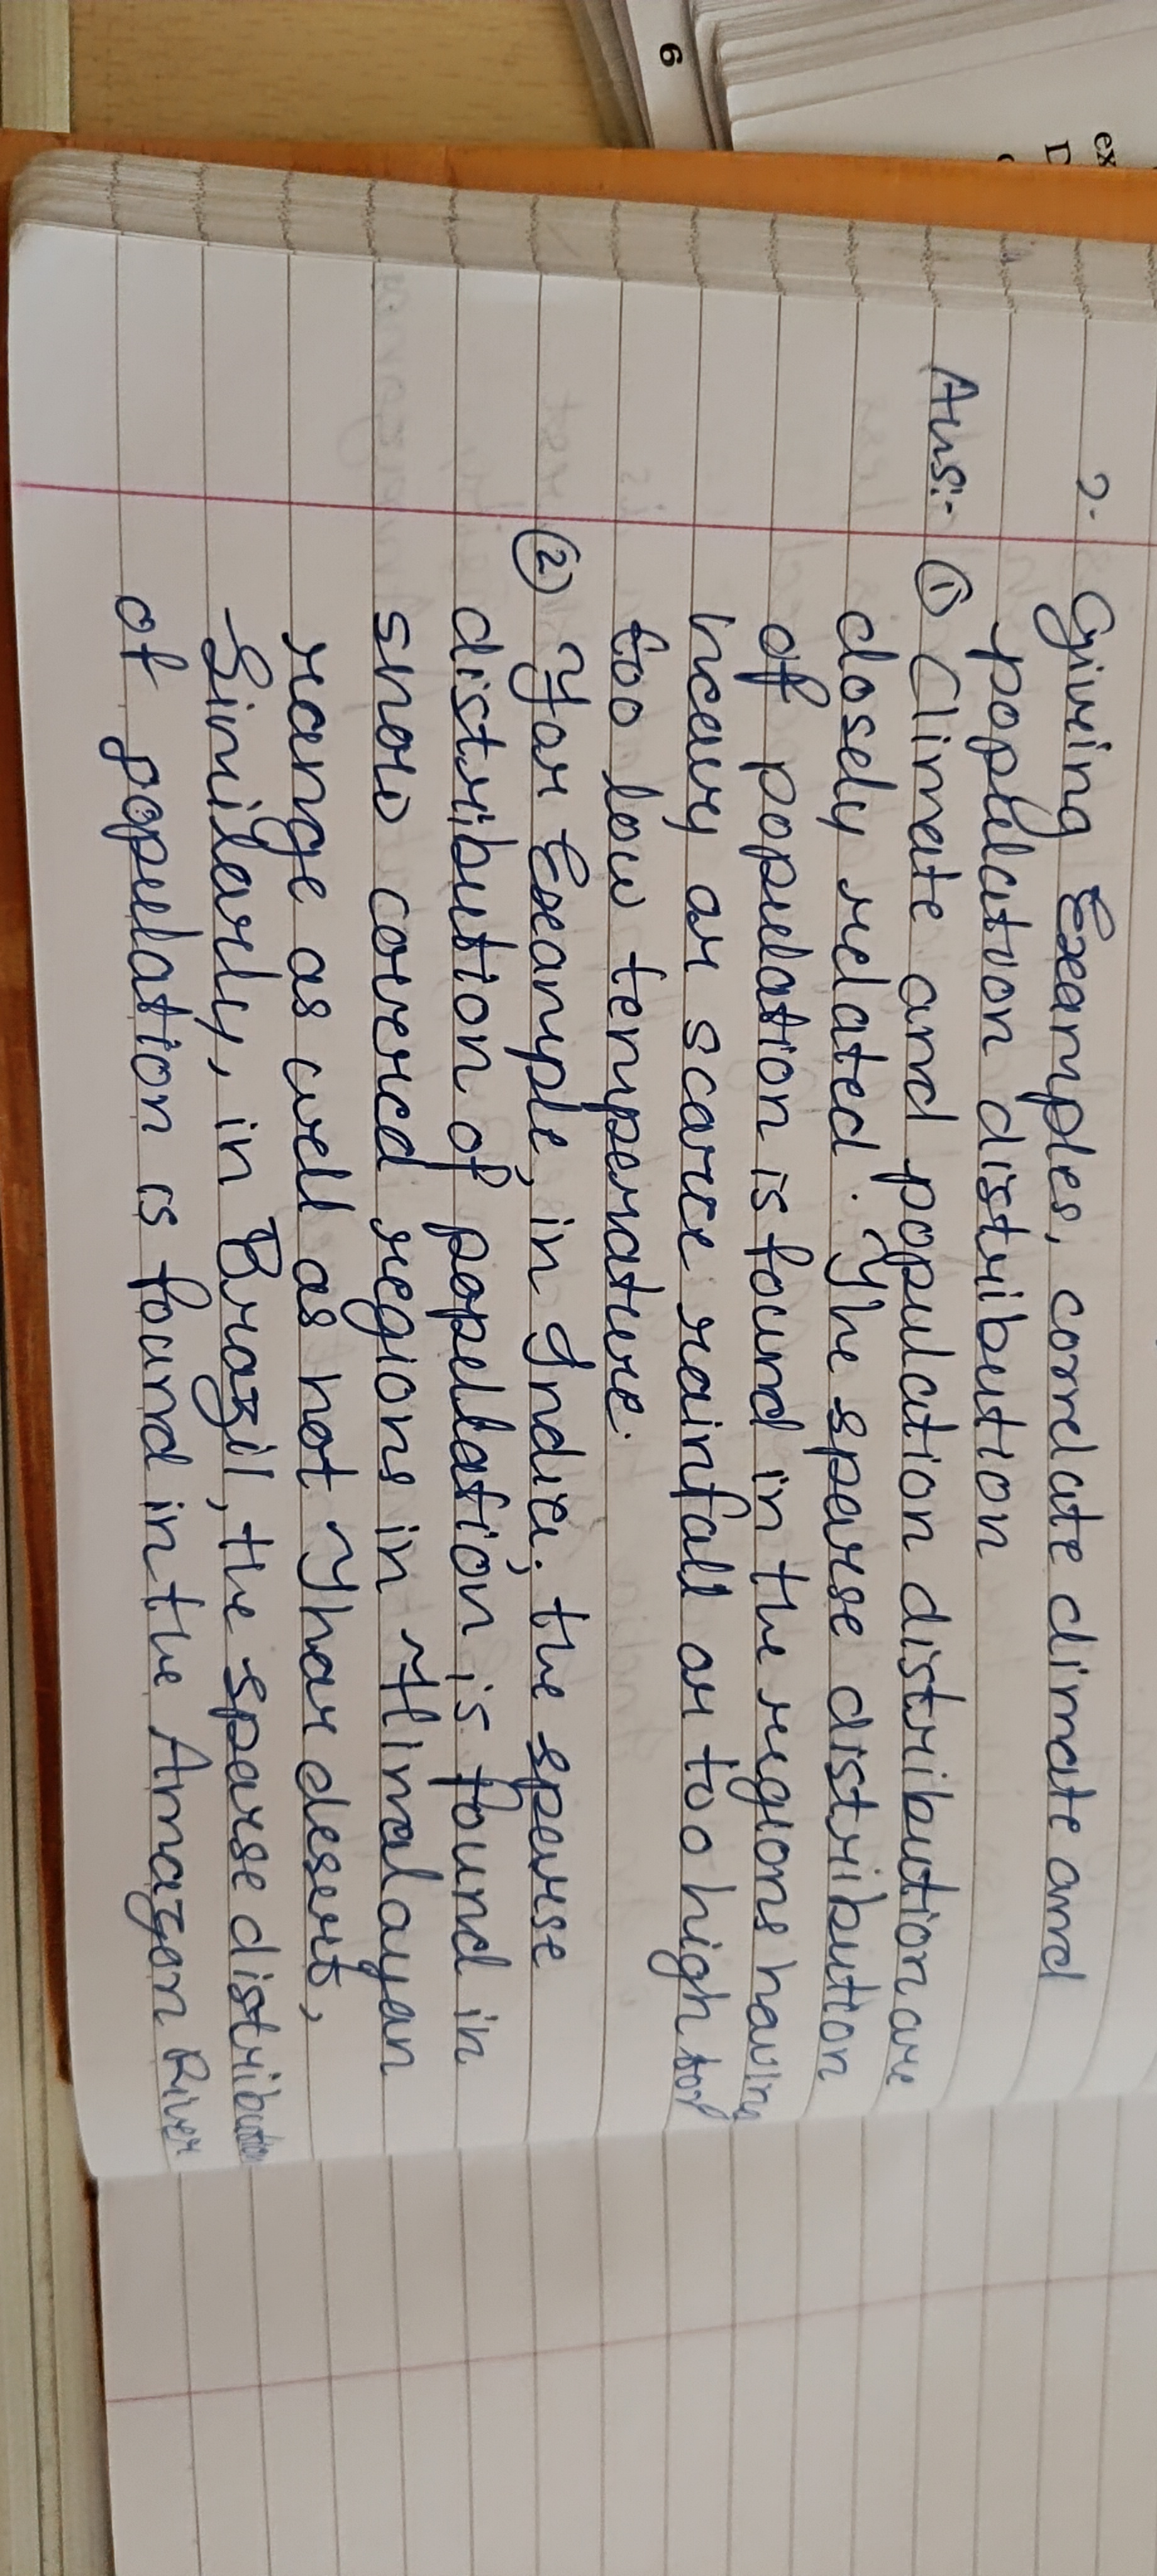 2. Giving Examples, correlate climate and
population distribution
Ans:- ① Climate and population distribution are
closely related. The sparse distribution
of population is found in the regions having
heavy or scarce rainfall or too high
too low temperature.
② For Example, in India, the sparse
distribution of population is found in
snow covered regions in Himalayan
range as well as hot Thar desert,
Similarly, in Brazil, the sparse distribution
of population is found in the Amazon River
6
ex